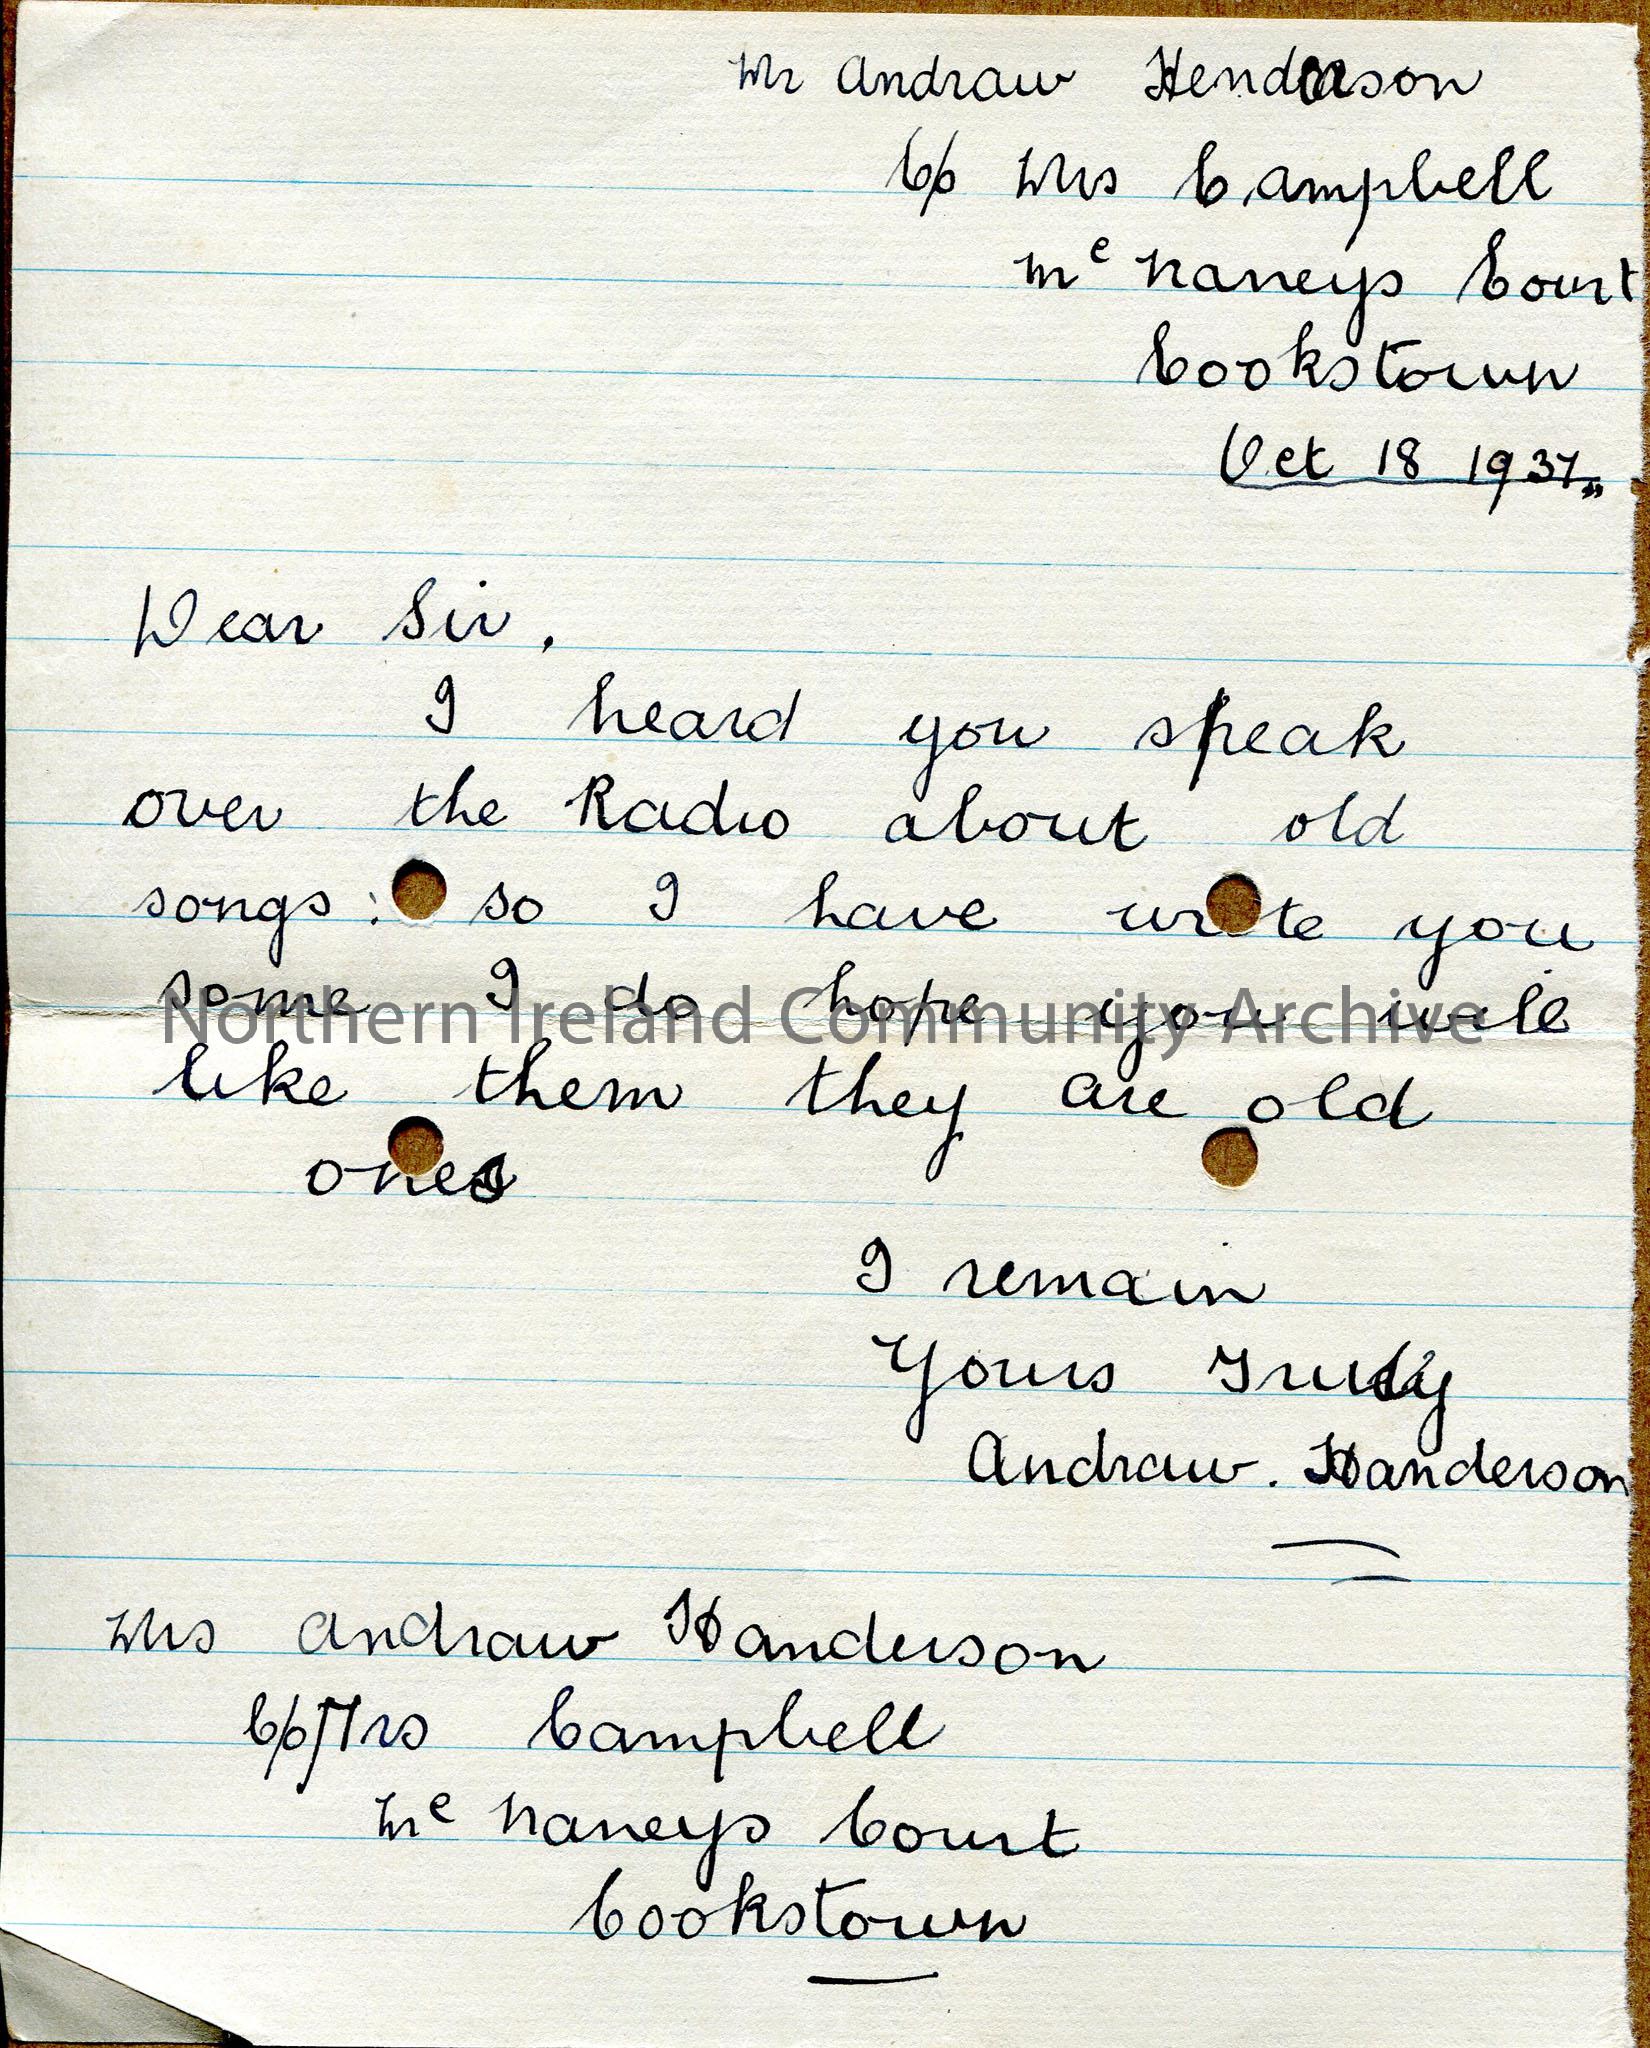 Mr Andraw Henderson
C/o Mrs Campbell
Mc Naneys Court
Cookstown
Oct 18 1937"
Dear Sir,
I heard you speak
over the Radio about old
songs: so I have wrote you
some I do hope you will
Northern Ireland Community Archive
like them they are old
ones
I remain
Yours Truly
Andraw. Handerson
Mrs Andraw Handerson
C/o Mrs Campbell
Mc Naneys Court
Cookstown